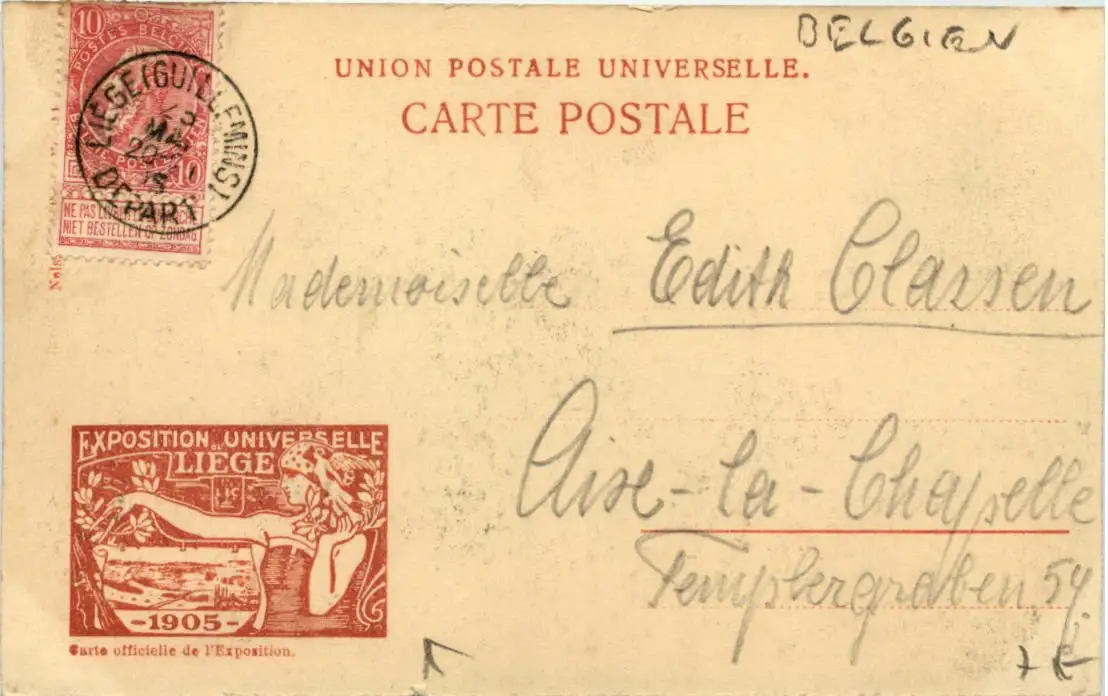 BELGIEN
UNION POSTALE UNIVERSELLE.
CARTE POSTALE
10
POSTES BELGIQUE
10
NE PAS LIVRER LE DIMANCHE
NIET BESTELLEN OP ZONDAG
LIEGE (GUILLEMINS)
DEPART
Nels
Mademoiselle Edith Classen
Aixe-la-Chapelle
Templergraben 54.
EXPOSITION UNIVERSELLE
LIEGE
-1905-
Carte officielle de l'Exposition.